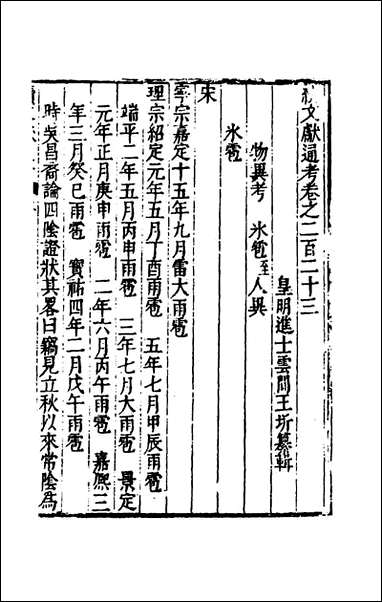 續文獻通考卷之二百二十三
皇明進士雲間王圻纂輯
物異考 氷雹至人異
氷雹
宋
寧宗嘉定十五年九月雷大雨雹
理宗紹定元年五月丁酉雨雹 五年七月甲辰雨雹
端平二年五月丙申雨雹 三年七月大雨雹 景定
元年正月庚申雨雹 二年六月丙午雨雹 嘉熙三
年三月癸巳雨雹 寳祐四年二月戊午雨雹
時吳昌裔論四陰證狀其畧曰竊見立秋以來常陰爲